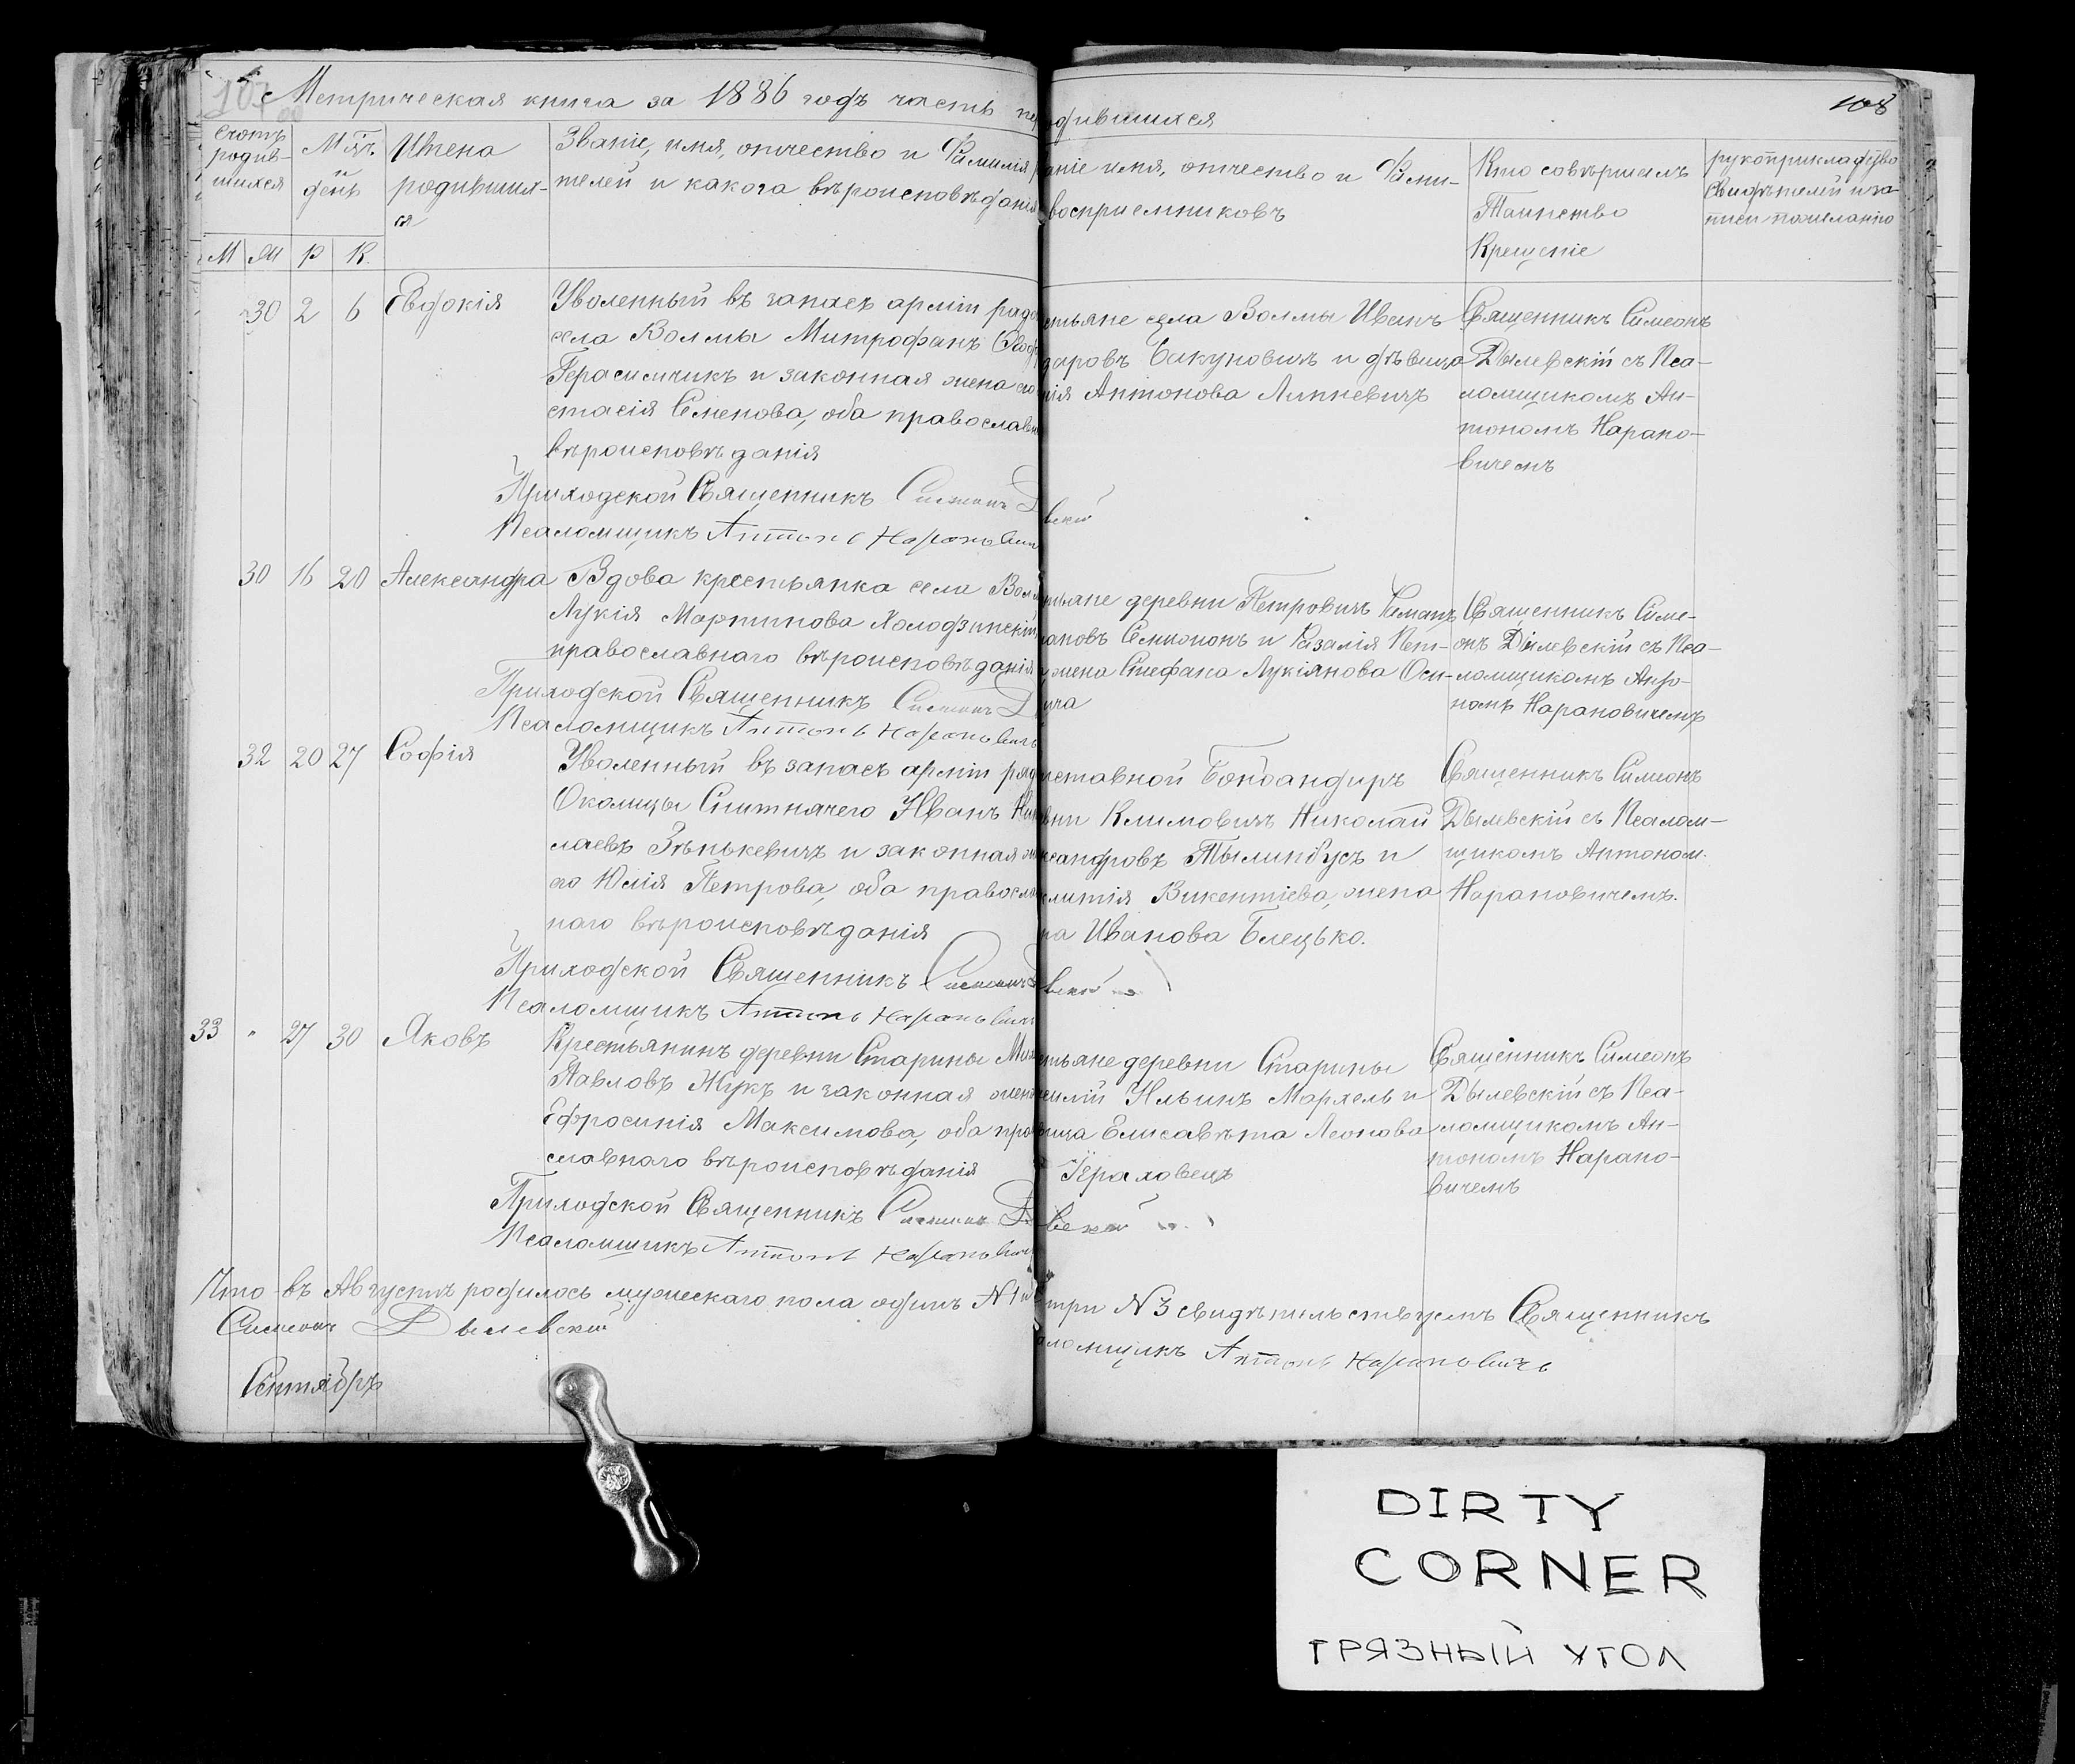 Метрическая книга за 1886 годъ часть
родившихся
108
Счотъ родив-шихся
Мѣц. и день
Имена родивших-ся
Званіе, имя, отчество и Фамилія
телей и какога вѣроисповѣданія
аніе имя, отчество и Фами-
воспріемниковъ
Кто совершалъ
Таинство
Крещеніе
рукоприкладство
свидѣтелей иза-
писи пожеланію
М М Р К.
30 2 6 Евдокія
Уволенный въ запасъ арміи рядо
села Волмы Митрофанъ
Герасимчикъ и законная жена его
стасія Семенова, оба православн
вѣроисповѣданія
Приходской Священникъ Симеонъ Д
Псаломщикъ Антонъ Наранович
стьяне села Волмы Иванъ
даровъ Бакуновичъ и дѣвица
нія Антонова Липневичъ
вскій
Священникъ Симеонъ
Дылевскій съ Пса-
ломщикомъ Ан-
тономъ Нарано-
вичемъ
30 16 20 Александра
Вдова крестьянка села Волм
Лукія Мартинова Холодзинскі
православнаго вѣроисповѣданія
Приходской Священникъ Симеонъ Д
Псаломщикъ Антонъ Наранович
тьяне деревни Петровичъ Романъ
ановъ и Розалія Пет-
жена Стефана Лукіянова Оси-
ича
Священникъ Симе-
онъ Дылевскій съ Пса-
ломщикомъ Анто-
номъ Нарановичемъ
32 20 27 Софія
Уволенный въ запасъ арміи ряд
Околицы Смитнячего Иванъ Ник
лаевъ Зѣнькевичъ и законная ж
его Юлія Петрова, оба правосла
наго вѣроисповѣданія
Приходской Священникъ Симеонъ
Псаломщикъ Антонъ Наранович
тставной Бонбандиръ
вни Климовичъ Николай
ксандровъ и
литія Викентіева, жена
на Иванова Блецько.
вскій
Священникъ Симеонъ
Дылевскій съ Псалом-
щикомъ Антоном.
Нарановичемъ.
33 " 27 30 Яковъ
Крестьянинъ деревни Старины Мих
Павловъ Жукъ и законная жена
Ефросинія Максимова, оба пра
славнаго вѣроисповѣданія
Приходской Священникъ Симеонъ Д
Псаломщикъ Антонъ Наранович
стьяне деревни Старины
силій Ильинъ Мархель и
вица Елисавѣта Леонова
Гераховецъ
вскій
Священникъ Симеонъ
Дылевскій съ Пса-
ломщикомъ Ан-
тономъ Нарано-
вичемъ
Что въ Августѣ родилось мужескаго пола одинъ N 1 и
три N 3 свидѣтельствуемъ Священникъ
Симеонъ Дылевскій
аломщикъ Антонъ Нарановичъ
Сентябрь
DIRTY
CORNER
ГРЯЗНЫЙ УГОЛ